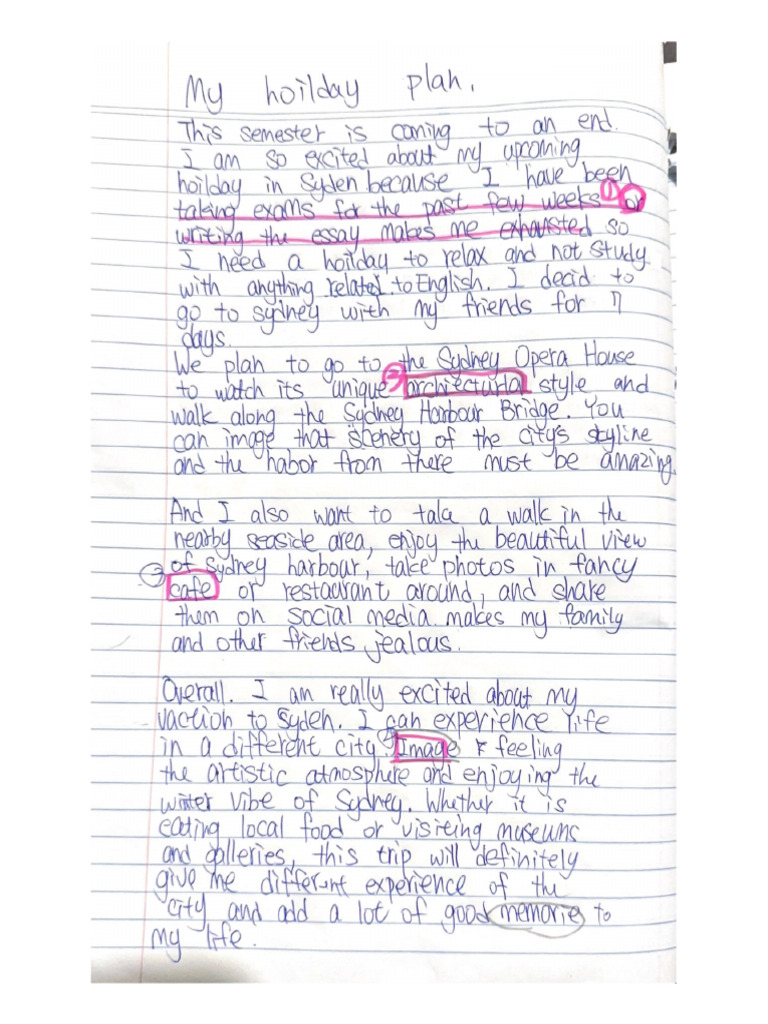 My hoilday plan.
This semester is coming to an end.
I am so excited about my upcoming
hoilday in Syden because I have been
taking exams for the past few weeks ① or
writing the essay makes me exhausted so
I need a hoilday to relax and not study
with anything related to English. I decid to
go to sydney with my friends for 7
days.
We plan to go to the Sydney Opera House
to watch its unique ② architecturlal style and
walk along the Sydney Harbour Bridge. You
can image that scenery of the city's skyline
and the habor from there must be amazing.
And I also want to take a walk in the
nearby seaside area, enjoy the beautiful view
of sydney harbour, take photos in fancy
③ cafe or restaurant around, and share
them on social media. makes my family
and other friends jealous.
Overall. I am really excited about my
vaction to Syden. I can experience life
in a different city. Image feeling
the artistic atmosphere and enjoying the
winter vibe of Sydney. Whether it is
eating local food or visiting museums
and galleries, this trip will definitely
give me different experience of the
city and add a lot of good memorie to
my life.